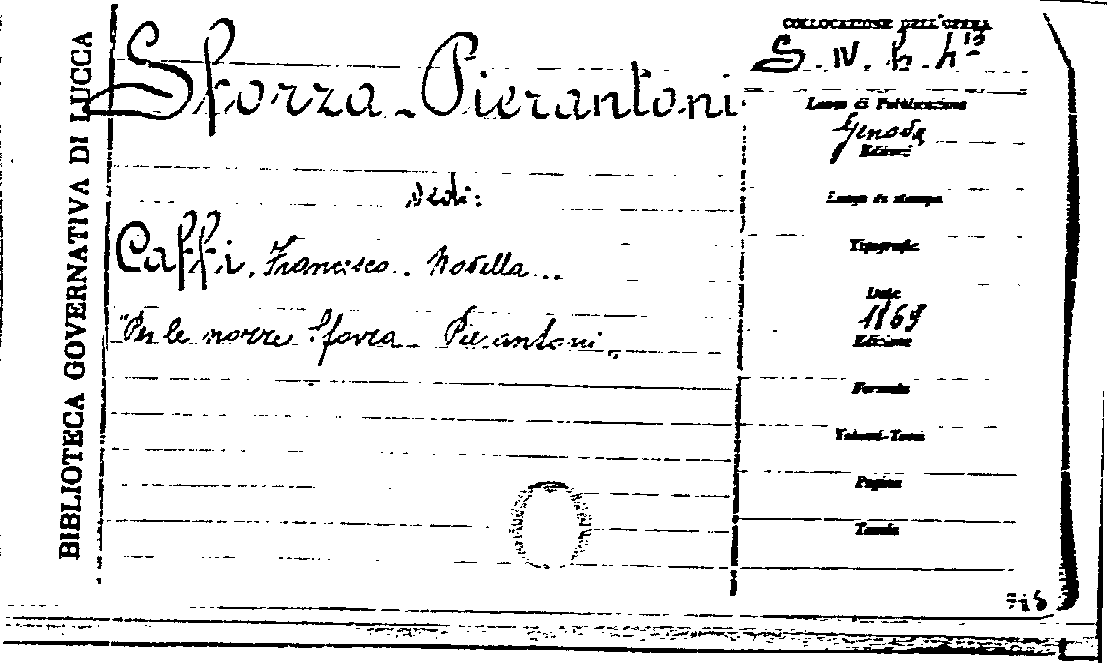 BIBLIOTECA GOVERNATIVA DI LUCCA
Sforza - Pierantoni
Vedi:
Caffi, Francesco. Novella...
"Per le nozze Sforza - Pierantoni"
COLLOCAZIONE DELL'OPERA
S. IV. h.
Luogo di Pubblicazione
Genova
Editori
Luogo di stampa
Tipografie
Date
1869
Edizione
Formato
Volumi-Tomi
Pagine
Tavole